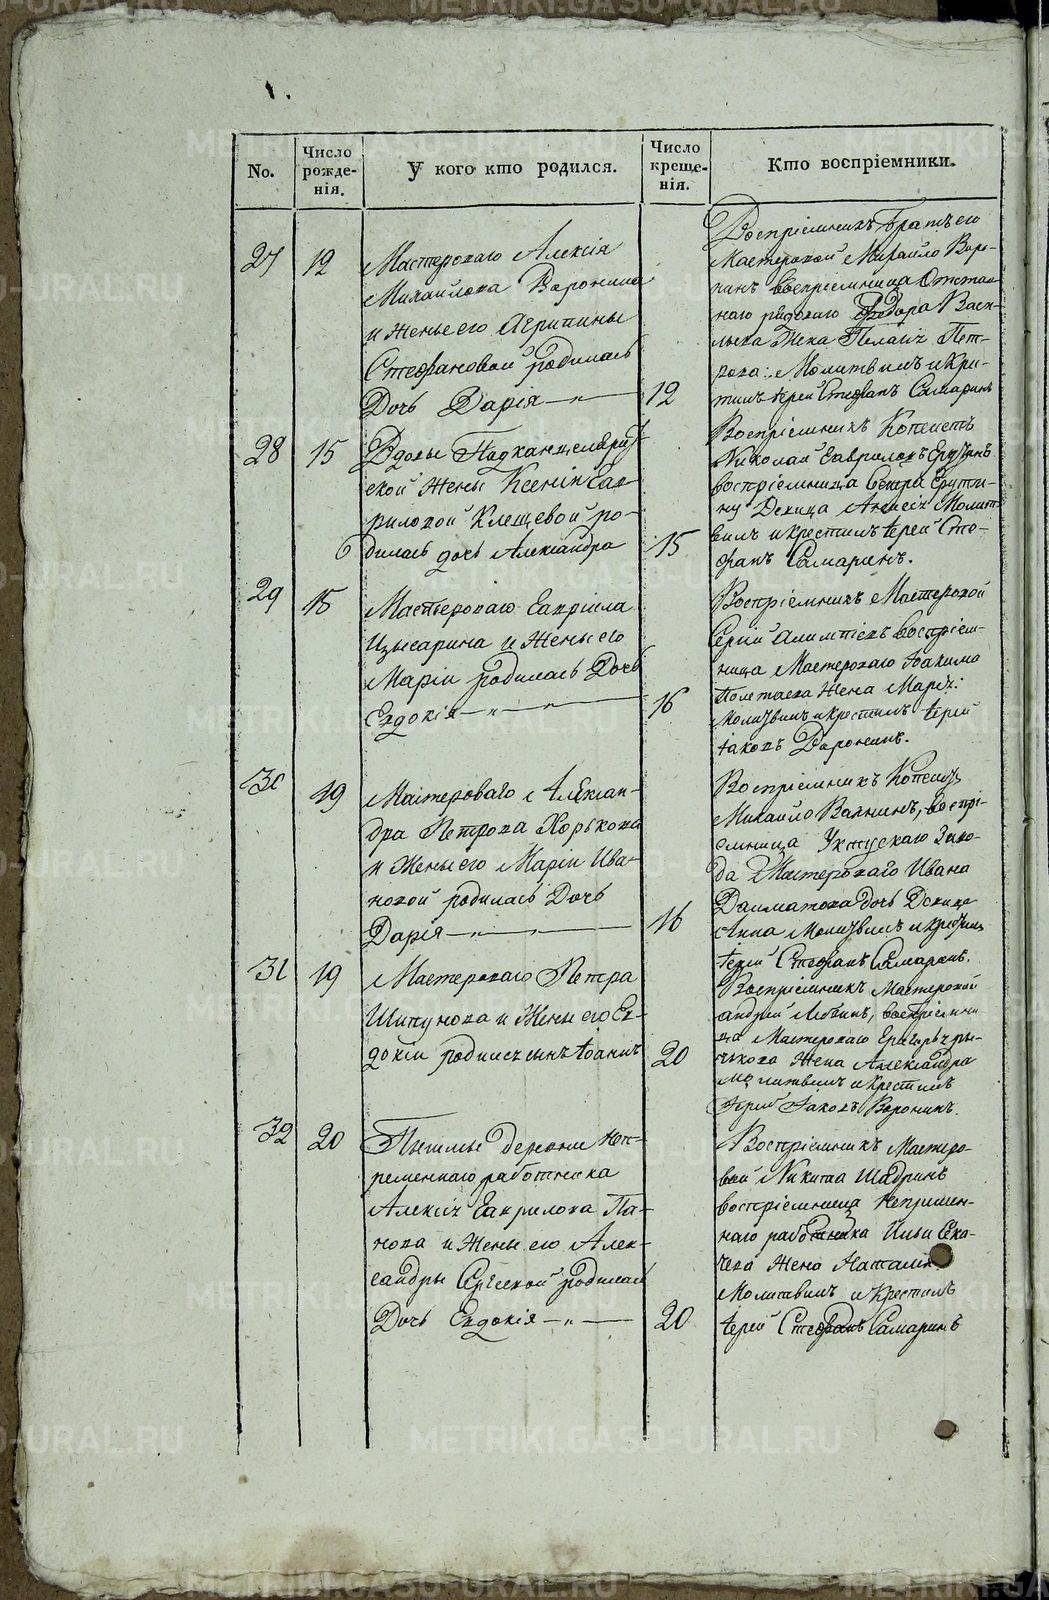 No.
Число рожде-нія.
У кого кто родился.
Число креще-нія.
Кто воспріемники.
27
12
Мастероваго Алексія
Михаилова Воронина
и Жены его Агрипины
Стефановой родилась
Дочь Дарія
12
Воспріемникъ братъ его
Мастеровой Михайло Воро-
нинъ воспріемница Отстав-
наго рядоваго Федора Васи-
льева Жена Пелагія Пет-
рова: Молитвилъ и Кре-
тилъ іерей Стефанъ Самаринъ
28
15
Вдовы Подканцеляри
ской Жены Ксеніи Гав
риловой Клещевой ро-
дилась дочь Александра
15
Воспріемникъ Копеистъ
Николай Гавриловъ
воспріемница Сестра
Девица Молит
вилъ и крестилъ іерей Сте-
фанъ Самаринъ.
29
15
Мастероваго Гавріила
и Жены его
Маріи родилась Дочь
Евдокія
16
Воспріемникъ Мастеровой
воспріем-
ница Мастероваго Іоакима
Полетаева Жена Марія:
Молитвилъ и крестилъ іерей
Іаковъ Воронинъ.
30
19
Мастероваго Алексан-
дра Петрова Хорькова
и Жены его Маріи Ива-
новой родилась Дочь
Дарія
16
Воспріемникъ Копеистъ
Михайло воспрі-
емница Уктускаго Заво-
да Мастероваго Ивана
Далматова дочь Девица
Анна Молитвилъ и крестилъ
іерей Стефанъ Самаринъ.
31
19
Мастероваго Петра
Шипунова и Жены его Ев-
докіи родился сынъ Іоаннъ
20
Воспріемникъ Мастеровой
андрей воспріемни
ца Мастероваго
Жена Александра
молитвилъ и крестилъ
Іерей Іаковъ Воронинъ.
32
20
деревни Неп-
ременнаго работника
Алексія Гаврилова Па-
нова и Жены его Алек-
сандры Сергеевой родилась
Дочь Евдокія
20
Воспріемникъ Мастеро-
вой Никита Шадринъ
воспріемница Непримен-
наго работника Ильи
Жена Наталія
Молитвилъ и крестилъ
іерей Стефанъ Самаринъ
METRIKI.GASO-URAL.RU